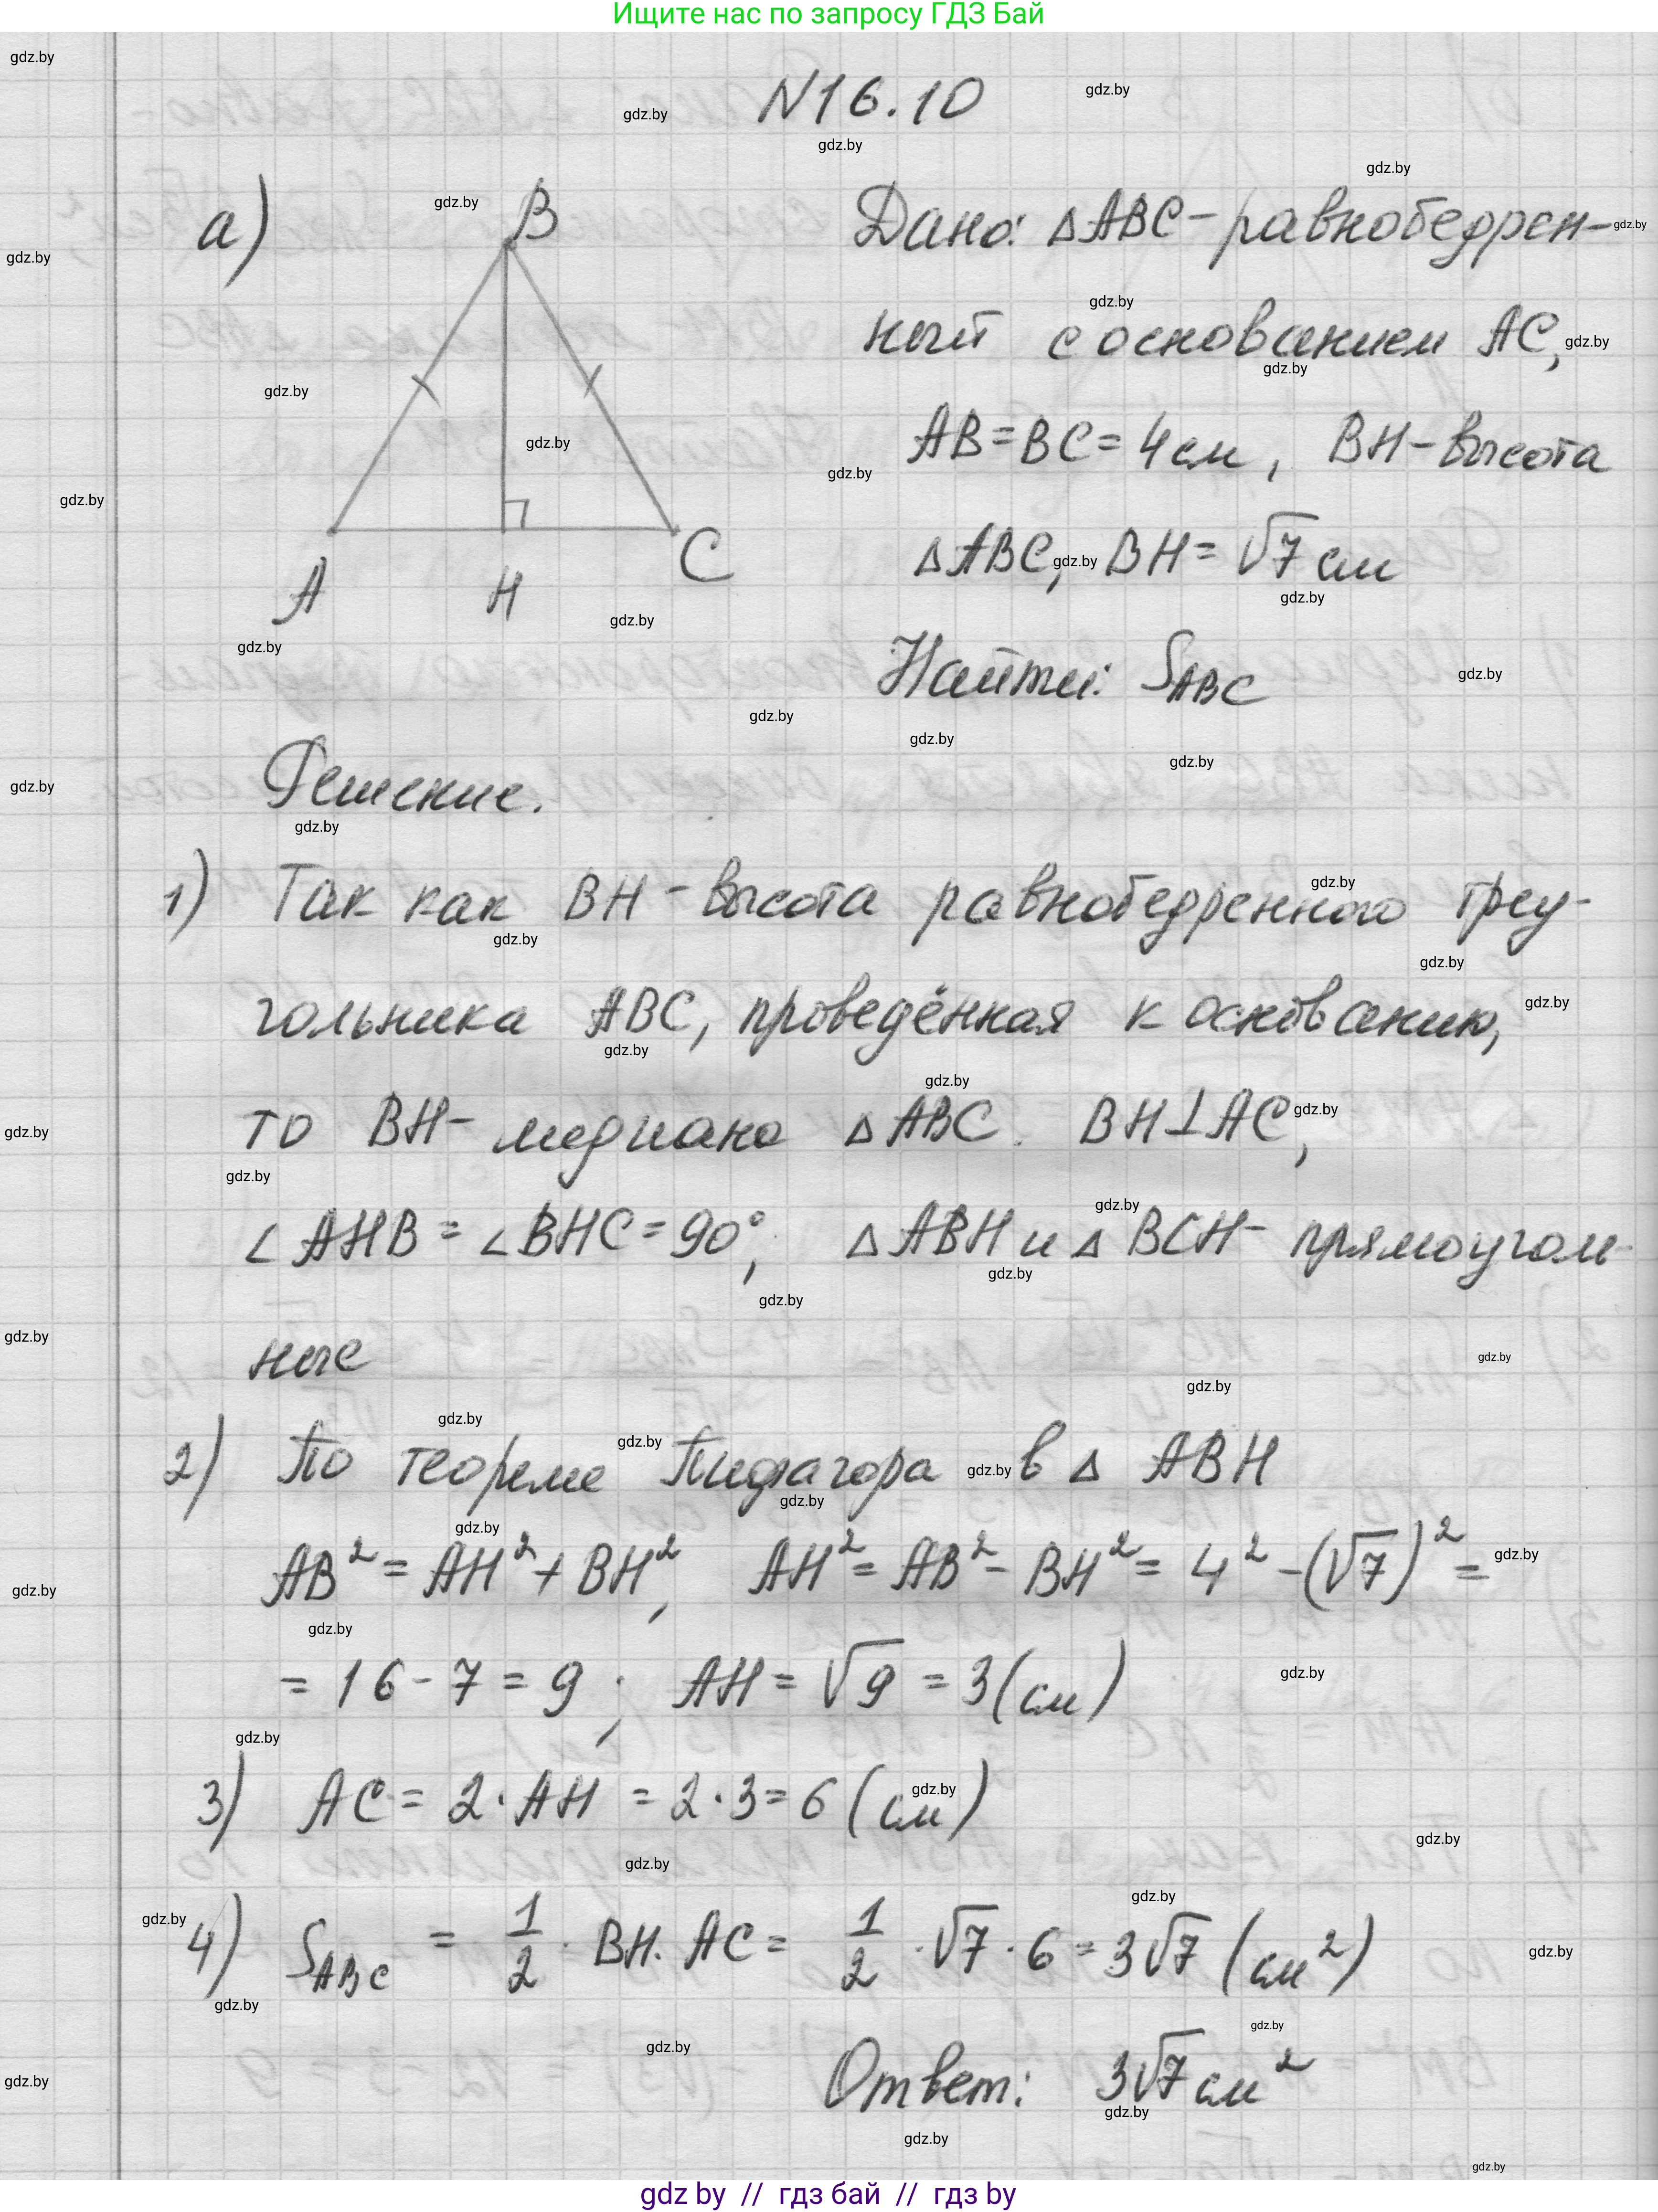 Ищите нас по запросу ГДЗ Бай
N16.10
а)
B
A
H
C
Дано: △ABC - равнобедрен-
ный с основанием AC,
AB = BC = 4 см, BH - высота
△ABC, BH = √7 см
Найти: S_ABC
Решение.
1) Так как BH - высота равнобедренного треу-
гольника ABC, проведённая к основанию,
то BH - медиана △ABC. BH⊥AC,
∠AHB = ∠BHC = 90°, △ABH и △BCH - прямоуголь-
ные
2) По теореме Пифагора в △ ABH
AB² = AH² + BH², AH² = AB² - BH² = 4² - (√7)² =
= 16 - 7 = 9; AH = √9 = 3 (см)
3) AC = 2 · AH = 2 · 3 = 6 (см)
4) S_ABC = 1/2 · BH · AC = 1/2 · √7 · 6 = 3√7 (см²)
Ответ: 3√7 см²
gdz by // гдз бай // гдз by